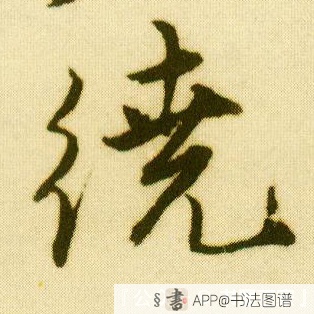 繞
§ 書 APP@书法图谱